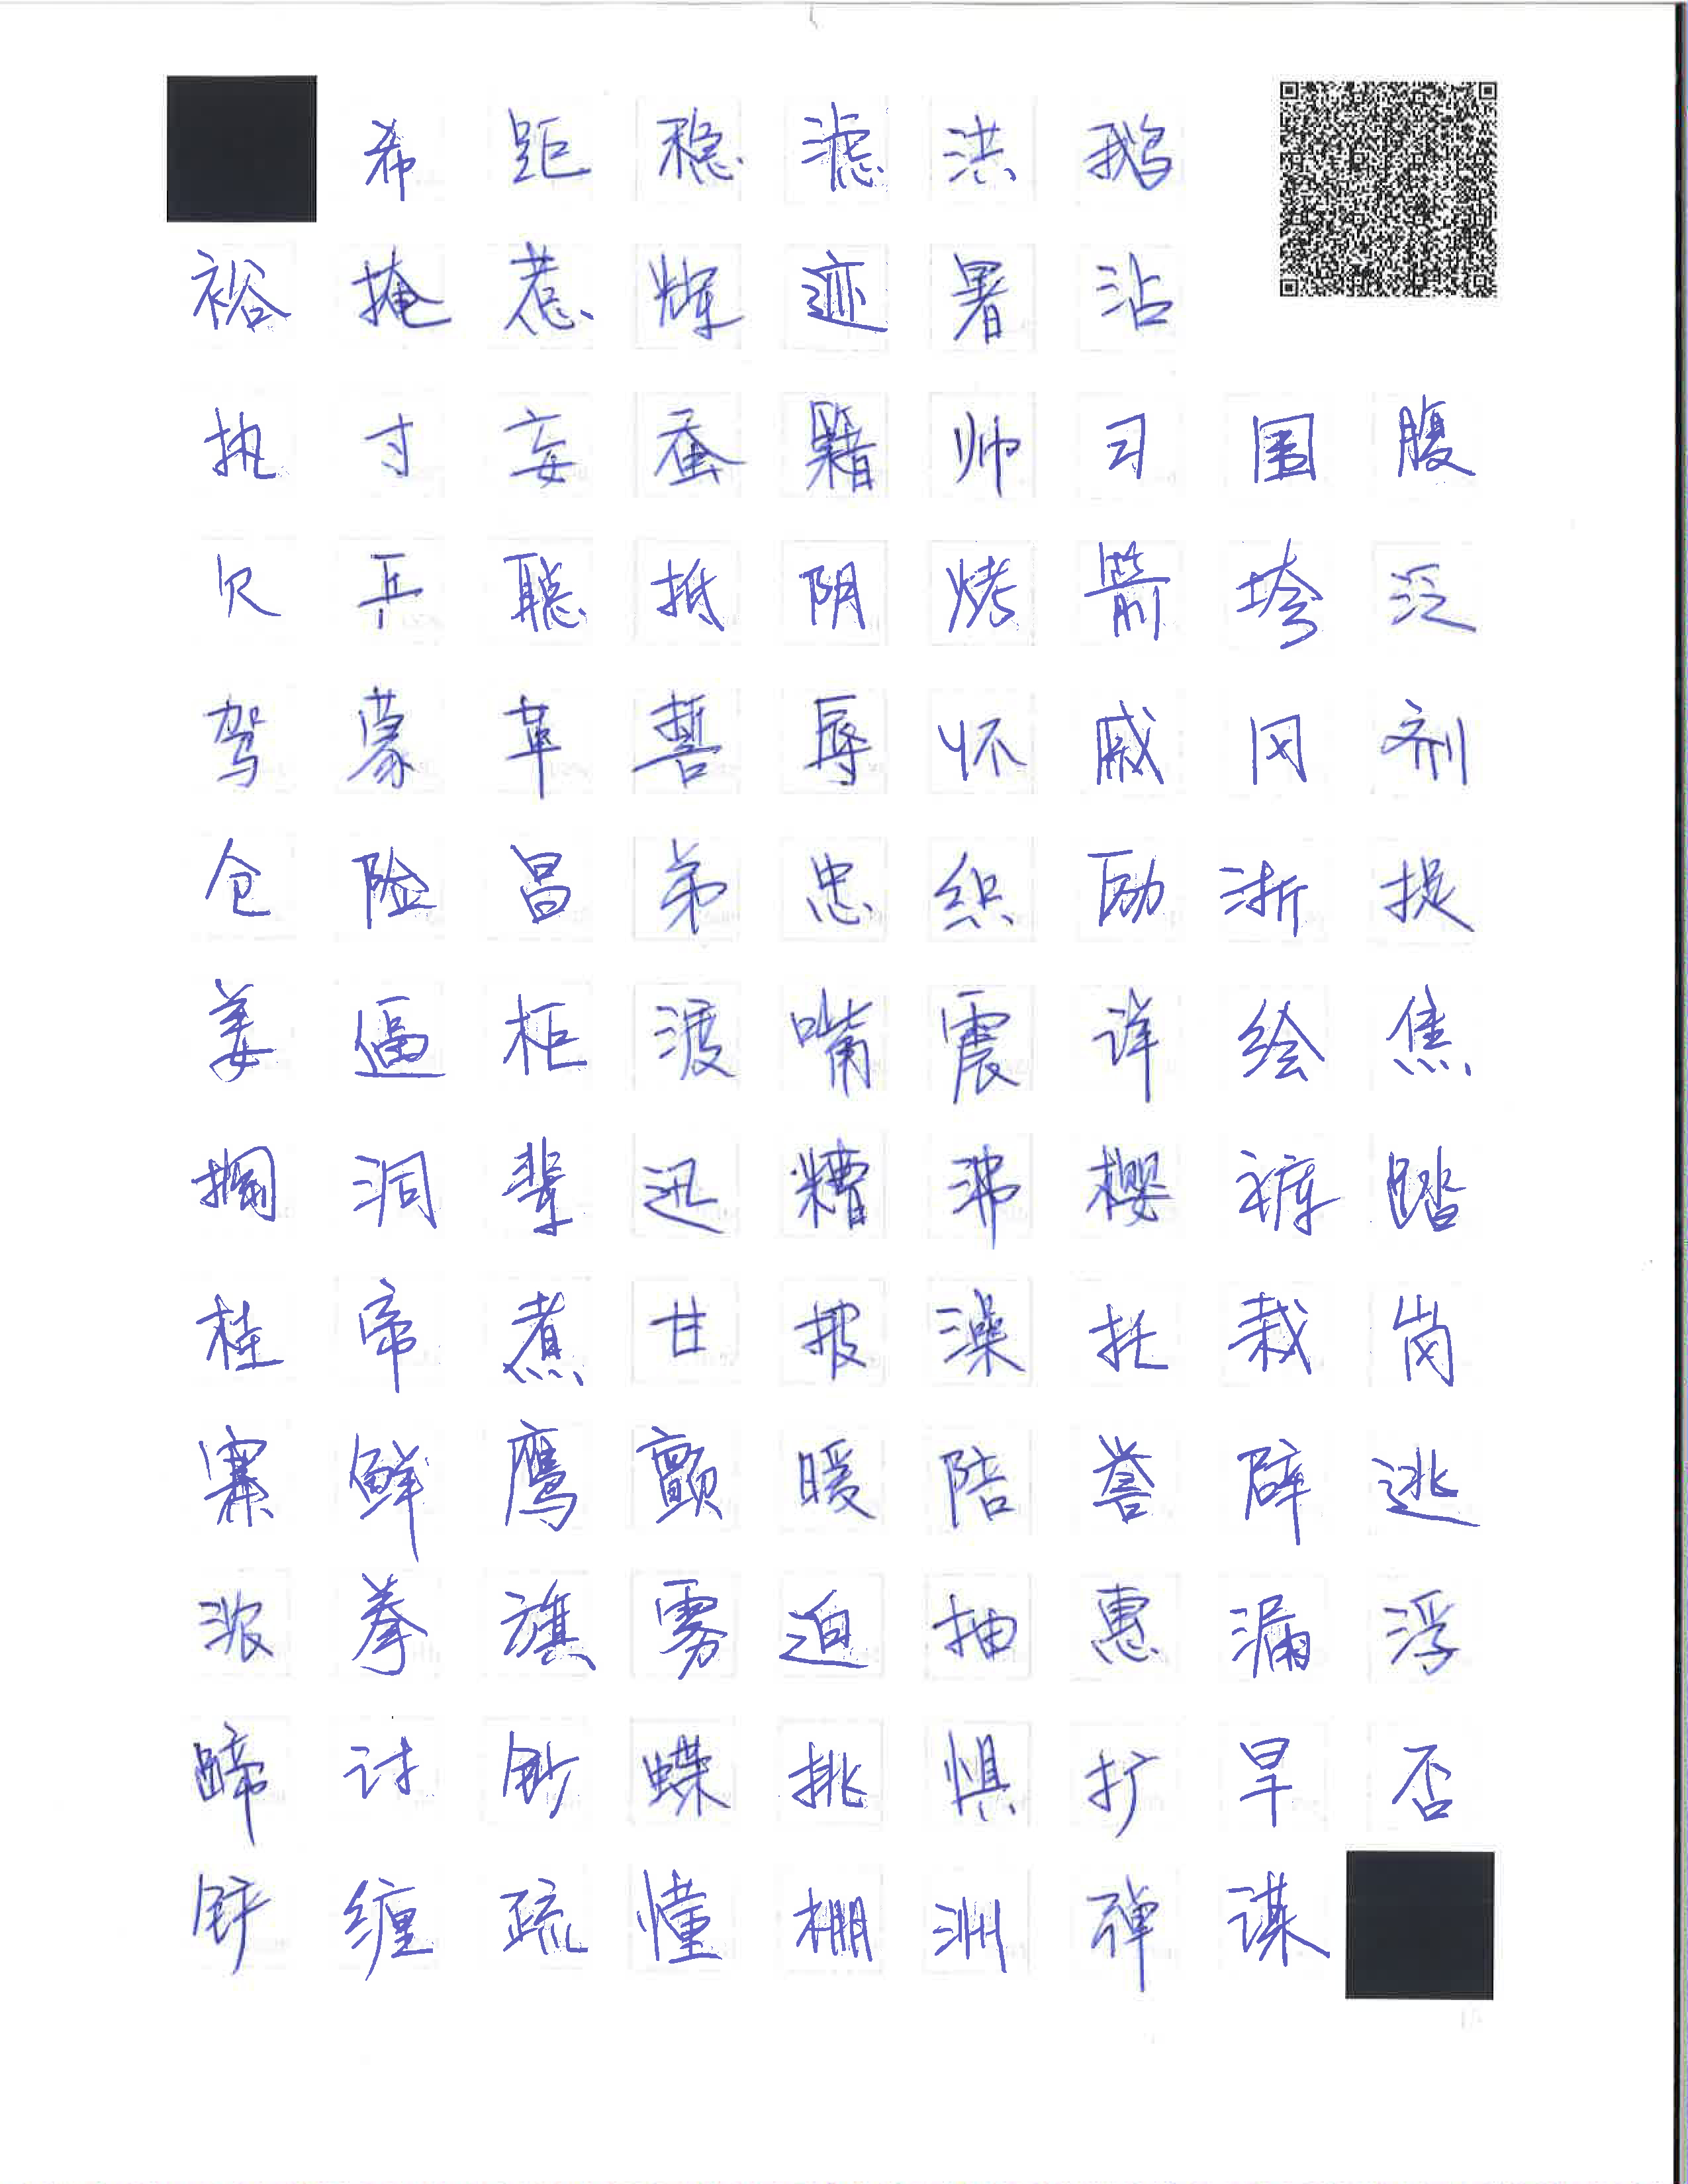 希距稳滤洪鹅
裕掩惹辉迹署沾
执寸妄蚕籍帅习围腹
欠乒聪抵阴烤箭垮泛
驾蒙革誓辱怀戚冈剂
仓险昌弟忠织励浙捉
姜逼柜渡嘴震详绘焦
搁洞辈迅糟沸樱裤踏
桂帝煮甘披澡托栽岗
寨鲜鹰颤暖陪誉辟逃
浓拳旗雾迫抽惠漏浮
蹄讨钞蝶挑惧扩旱否
锌缠疏懂棚洲碑谋